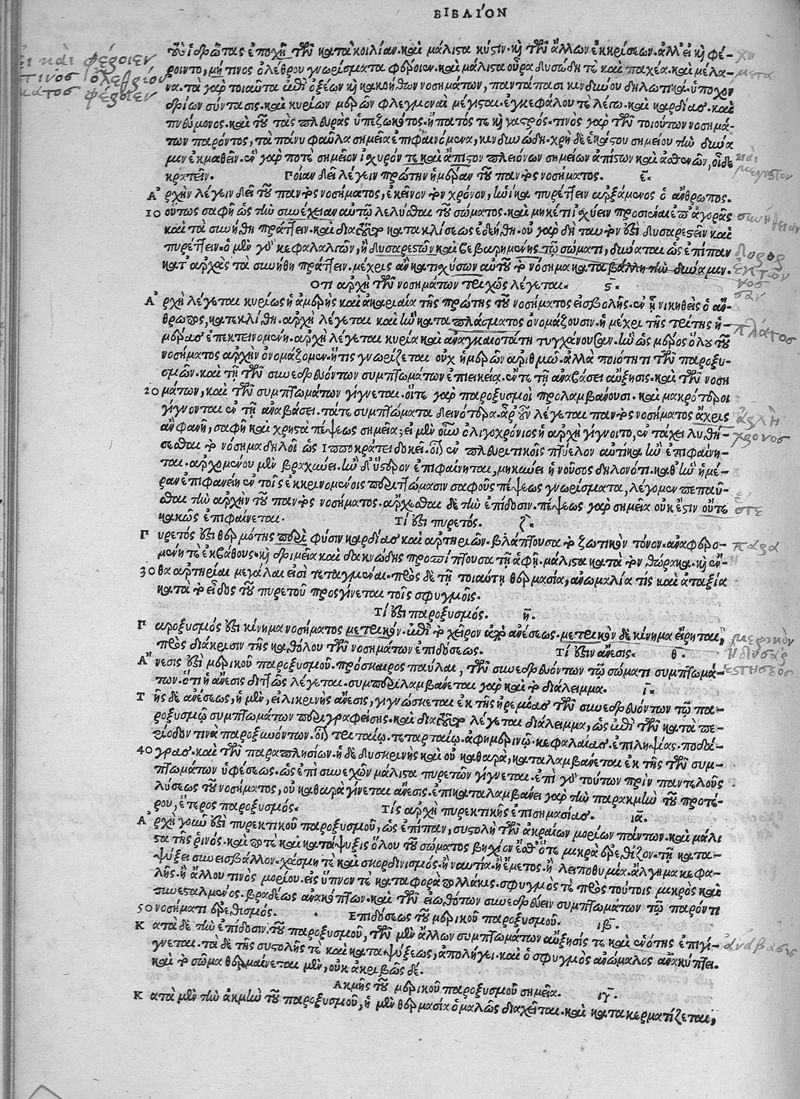 ΒΙΒΛΙΟΝ
τοῦ ἱδρῶτας ἐποχὴ τῶν κατὰ κοιλίαν καὶ μάλιστα κύστιν. καὶ τῶν ἄλλων ἐκκρίσεων. ἀλλ' εἰ καὶ φέ-
ροιντο, μή τινος ὀλέθρου γνωρίσματα φέροιεν. καὶ μάλιστα οὖρα δυσώδη τε καὶ παχέα. καὶ μέλα-
να. τὰ γὰρ τοιαῦτα ἐπὶ ὀξέων ἢ κακοήθων νοσημάτων, παντάπασι κινδύνου δηλωτικά. ὑποχον
δρίων σύντασις. καὶ κυρίων μερῶν φλεγμοναὶ μέγισται. ἐγκεφάλου τε λέγω. καὶ καρδίας. καὶ
πνεύμονος. καὶ τοῦ τὰς πλευρὰς ὑπεζωκότος. ἢ ἥπατός τε ἢ γαστρός. τινὸς γὰρ τῶν τοιούτων νοσημά-
των παρόντος, τὰ πάνυ φαῦλα σημεῖα ἐπιφαινόμενα, κινδυνώδη. χρὴ δὲ ἑκάστου σημείου τὴν δύνα
μιν ἐκμαθεῖν. ἓν γάρ ποτε σημεῖον ἰσχυρόν τε καὶ ἄπιστον πλειόνων σημείων ἀπίστων καὶ ἀσθενῶν, οἶδε
κρατεῖν. Ποίαν δεῖ λέγειν πρώτην ἡμέραν τοῦ παντὸς νοσήματος. ε.
Α ρχὴν λέγειν δεῖ τοῦ παντὸς νοσήματος, ἐκεῖνον τὸν χρόνον, ᾧ καὶ πυρέττειν ἀρξάμενος ὁ ἄνθρωπος.
10 οὕτως σαφῆ ὡς τὴν συνέχειαν αὐτῷ λελύσθαι τοῦ σώματος. καὶ μηκέτι ἰσχύειν προσιέναι ἐπ' ἀγορᾶς
καὶ τὰ συνήθη πράττειν. καὶ διὰ τοῦτο κατακλίσεως ἐδεήθη. οὐ γὰρ δὴ ταὐτόν ἐστι δυσαρεστεῖν καὶ
πυρέττειν. ὁ μὲν γὰρ κεφαλαλγῶν, ἢ δυσαρεστῶν καὶ βεβαρημένης τῷ σώματι, δύναται ὡς ἐπίπαν
κατ' ἀρχὰς τὰ συνήθη πράττειν. μέχρις ἂν κατισχύσαν αὐτοῦ τὸ νόσημα καταβάλλῃ τὴν δύναμιν.
Ὅτι ἀρχὴ τῶν νοσημάτων τριχῶς λέγεται. ς.
Α ρχὴ λέγεται κυρίως ἡ ἀμερὴς καὶ ἀκαριαία τῆς πρώτης τοῦ νοσήματος εἰσβολῆς. ἐν ᾗ νικηθεὶς ὁ ἄν-
θρωπος, κατεκλίθη. ἀρχὴ λέγεται καὶ ἣν κατὰ πλάσματος ὀνομάζουσιν. ἡ μέχρι τῆς τρίτης ἡ-
μέρας ἐπεκτεινομένη. ἀρχὴ λέγεται κυρία καὶ ἀναγκαιοτάτη τυγχάνουσαν. ἣν ὡς μέρος ὅλου τοῦ
νοσήματος ἀρχὴν ὀνομάζομεν. ἥτις γνωρίζεται οὐχ ἡμερῶν ἀριθμῷ. ἀλλὰ ποιότητι τῶν παροξυ-
σμῶν. καὶ τῇ τῶν συνεδρευόντων συμπτωμάτων ἐπιεικείᾳ. ἔν τε τῇ ἀναβάσει αὔξησις. καὶ τῶν νοση
20 μάτων, καὶ τῶν συμπτωμάτων γίγνεται. οἵ τε γὰρ παροξυσμοὶ προλαμβάνουσι. καὶ μακρότεροι
γίγνονται ἐν τῇ ἀναβάσει. τά τε συμπτώματα δεινότερα. ἀρχὴ οὖν λέγεται παντὸς νοσήματος ἄχρις
ἂν φανῇ, σαφῆ καὶ χρηστὰ πέψεως σημεῖα· εἰ μὲν οὖν ὀλιγοχρόνιος ἡ ἀρχὴ γίγνοιτο, ἐν τάχει λυθή-
σεσθαι τὸ νόσημα δηλοῖ ὡς Ἱπποκράτει δοκεῖ. οἷον ἐν πλευριτικοῖς πτύελον αὐτίκα ἢν ἐπιφαίνη-
ται. ἀρχομένου μὲν βραχύνει. ἢν δ' ὕστερον ἐπιφαίνηται, μηκύνει ἡ νοῦσος δηλονότι. καθ' ἣν ἡμέ-
ραν ἐπιφανείη ἐν τοῖς ἐκκρινομένοις περιττώμασιν σαφοῦς πέψεως γνωρίσματα, λέγομεν πεπαῦ-
σθαι τὴν ἀρχὴν τοῦ παντὸς νοσήματος. ἄρχεσθαι δὲ τὴν ἐπίδοσιν. πέψεως γὰρ σημεῖα οὐκ ἔστιν οὔτε
κακῶς ἐπιφαίνεται. Τί ἐστι πυρετός. ζ.
Π υρετός ἐστι θερμότης παρὰ φύσιν καρδίας καὶ ἀρτηριῶν. βλάπτουσα τὸν ζωτικὸν τόνον. ἀναφερο-
μένη τε ἐκ βάθους. καὶ δριμεῖα καὶ δακνώδης προσπίπτουσα τῇ ἁφῇ. μάλιστα κατὰ τὸν θώρακα. καὶ ἔν-
30 θα ἀρτηρίαι μεγάλαι εἰσὶ τεταγμέναι. πρὸς δὲ τῇ τοιαύτῃ θερμασίᾳ, ἀνωμαλία τις καὶ ἀταξία
κατὰ τὸ εἶδος τοῦ πυρετοῦ προσγίνεται τοῖς σφυγμοῖς.
Τί ἐστι παροξυσμός. η.
Π αροξυσμός ἐστι κίνημα νοσήματος μετρικόν. ἐπὶ τὸ χεῖρον ἀπὸ ἀνέσεως. μετρικὸν δὲ κίνημα εἴρηται,
πρὸς διάκρισιν τῆς καθόλου τῶν νοσημάτων ἐπιδόσεως. Τί ἐστιν ἄνεσις. θ.
Α νεσίς ἐστι μερικοῦ παροξυσμοῦ. πρόσκαιρος παῦλα, τῶν συνεδρευόντων τῷ σώματι συμπτωμά-
των. ὅτι ἡ ἄνεσις διττῶς λέγεται. συμπεριλαμβάνεται γὰρ καὶ τὸ διάλειμμα. ι.
Τ ῆς δὲ ἀνέσεως, ἡ μὲν, εἰλικρινὴς ἄνεσις, γιγνώσκεται ἐκ τῆς ἠρεμίας τῶν συνεδρευόντων τῷ πα-
ροξυσμῷ συμπτωμάτων περιγραφείσης. καὶ διὰ τοῦτο λέγεται διάλειμμα, ὡς ἐπὶ τῶν κατὰ πε-
ρίοδον τινὰ παροξυνόντων. οἷον τριταίῳ. τεταρταίῳ. ἀφημερινῷ. κεφαλαίας. ἐπιληψίας. ποδά-
40 γρας. καὶ τῶν παραπλησίων. ἡ δὲ δυσκρινὴς καὶ οὐ καθαρά, καταλαμβάνεται ἐκ τῆς τῶν συμ-
πτωμάτων ὑφέσεως. ὡς ἐπὶ συνεχῶν μάλιστα πυρετῶν γίγνεται. ἐπὶ γὰρ τούτων πρὶν παντελοῦς
λύσεως τοῦ νοσήματος, οὐ καθαρὰ γίνεται ἄνεσις. ἐπικαταλαμβάνει γὰρ τὴν παρακμὴν τοῦ προτέ-
ρου, ἕτερος παροξυσμός. Τίς ἀρχὴ πυρεκτικῆς ἐπισημασίας. ια.
Α ρχὴ γοῦν ἐστι πυρεκτικοῦ παροξυσμοῦ, ὡς ἐπίπαν, συστολὴ τῶν ἀκραίων μορίων πάντων. καὶ μάλι
στα τῆς ῥινός. καὶ ποτὲ καὶ κατάψυξις ὅλου τοῦ σώματος βηχίον ἔσθ' ὅτε μικρὰ ἐρεθίζον. τῇ κατα-
ψύξει συνεισβάλλον. χάσμη τε καὶ σκορδινισμός. ἢ ναυτία. ἢ ἔμετος. ἢ λειποθυμία. ἄλγημα κεφα-
λῆς. ἢ ἄλλου τινὸς μορίου. εἰς ὕπνον τε καταφορὰ πολλάκις. σφυγμός τε πρὸς τούτοις μικρὸς καὶ
συνεσταλμένος. βραδέως ἀνακύπτων. καὶ τῶν εἰωθότων συνεδρεύειν συμπτωμάτων τῷ παρόντι
50 νοσήματι ἐρεθισμός. Ἐπιδόσεως τοῦ μερικοῦ παροξυσμοῦ. ιβ.
Κ ατὰ δὲ τὴν ἐπίδοσιν τοῦ παροξυσμοῦ, τῶν μὲν ἄλλων συμπτωμάτων αὔξησίς τε καινότης ἐπιγί-
γνεται. τὰ δὲ τῆς συστολῆς τε καὶ καταψύξεως, ἀπολήγει. καὶ ὁ σφυγμὸς ἀνώμαλος ἀνακύπτει.
καὶ τὸ σῶμα θερμαίνεται μὲν, οὐκ ἀκριβῶς δέ.
Ἀκμῆς τοῦ μερικοῦ παροξυσμοῦ σημεῖα. ιγ.
Κ ατὰ μὲν τὴν ἀκμὴν τοῦ παροξυσμοῦ, ἡ μὲν θερμασία ὁμαλῶς διαχεῖται. καὶ κατακερματίζεται,
εἰ καὶ φέροιεν
τινος ὀλεθρίου
φέροιεν
μετα
μέγιστον
πλάτος
χρόνος
ἔτε
παρα
μερικὸν
ἀνάβασις